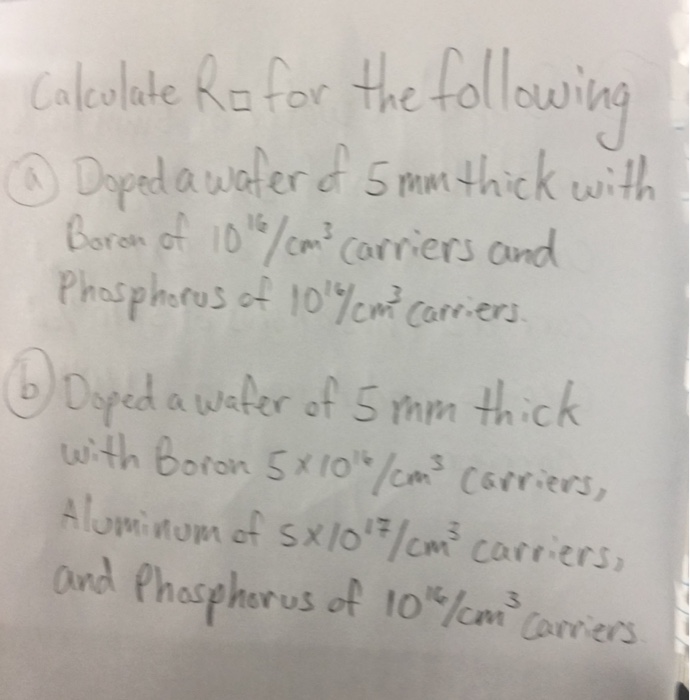 Calculate R□ for the following
ⓐ Doped a wafer of 5 mm thick with
Boron of 10¹⁶/cm³ carriers and
Phosphorus of 10¹⁶/cm³ carriers.
ⓑ Doped a wafer of 5 mm thick
with Boron 5×10¹⁶/cm³ carriers,
Aluminum of 5×10¹⁷/cm³ carriers,
and Phosphorus of 10¹⁶/cm³ carriers.